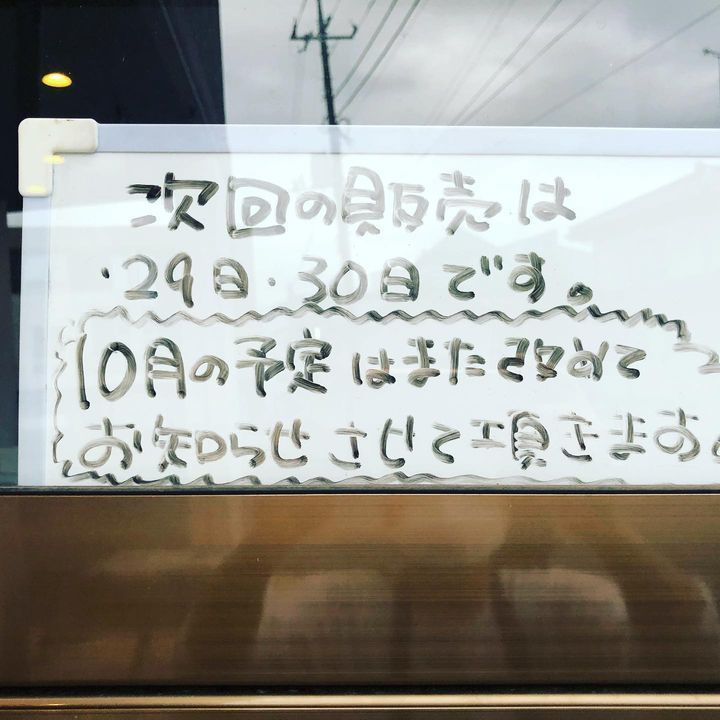 次回の販売は
・29日・30日です。
10月の予定はまた改めて
お知らせさせて頂きます。